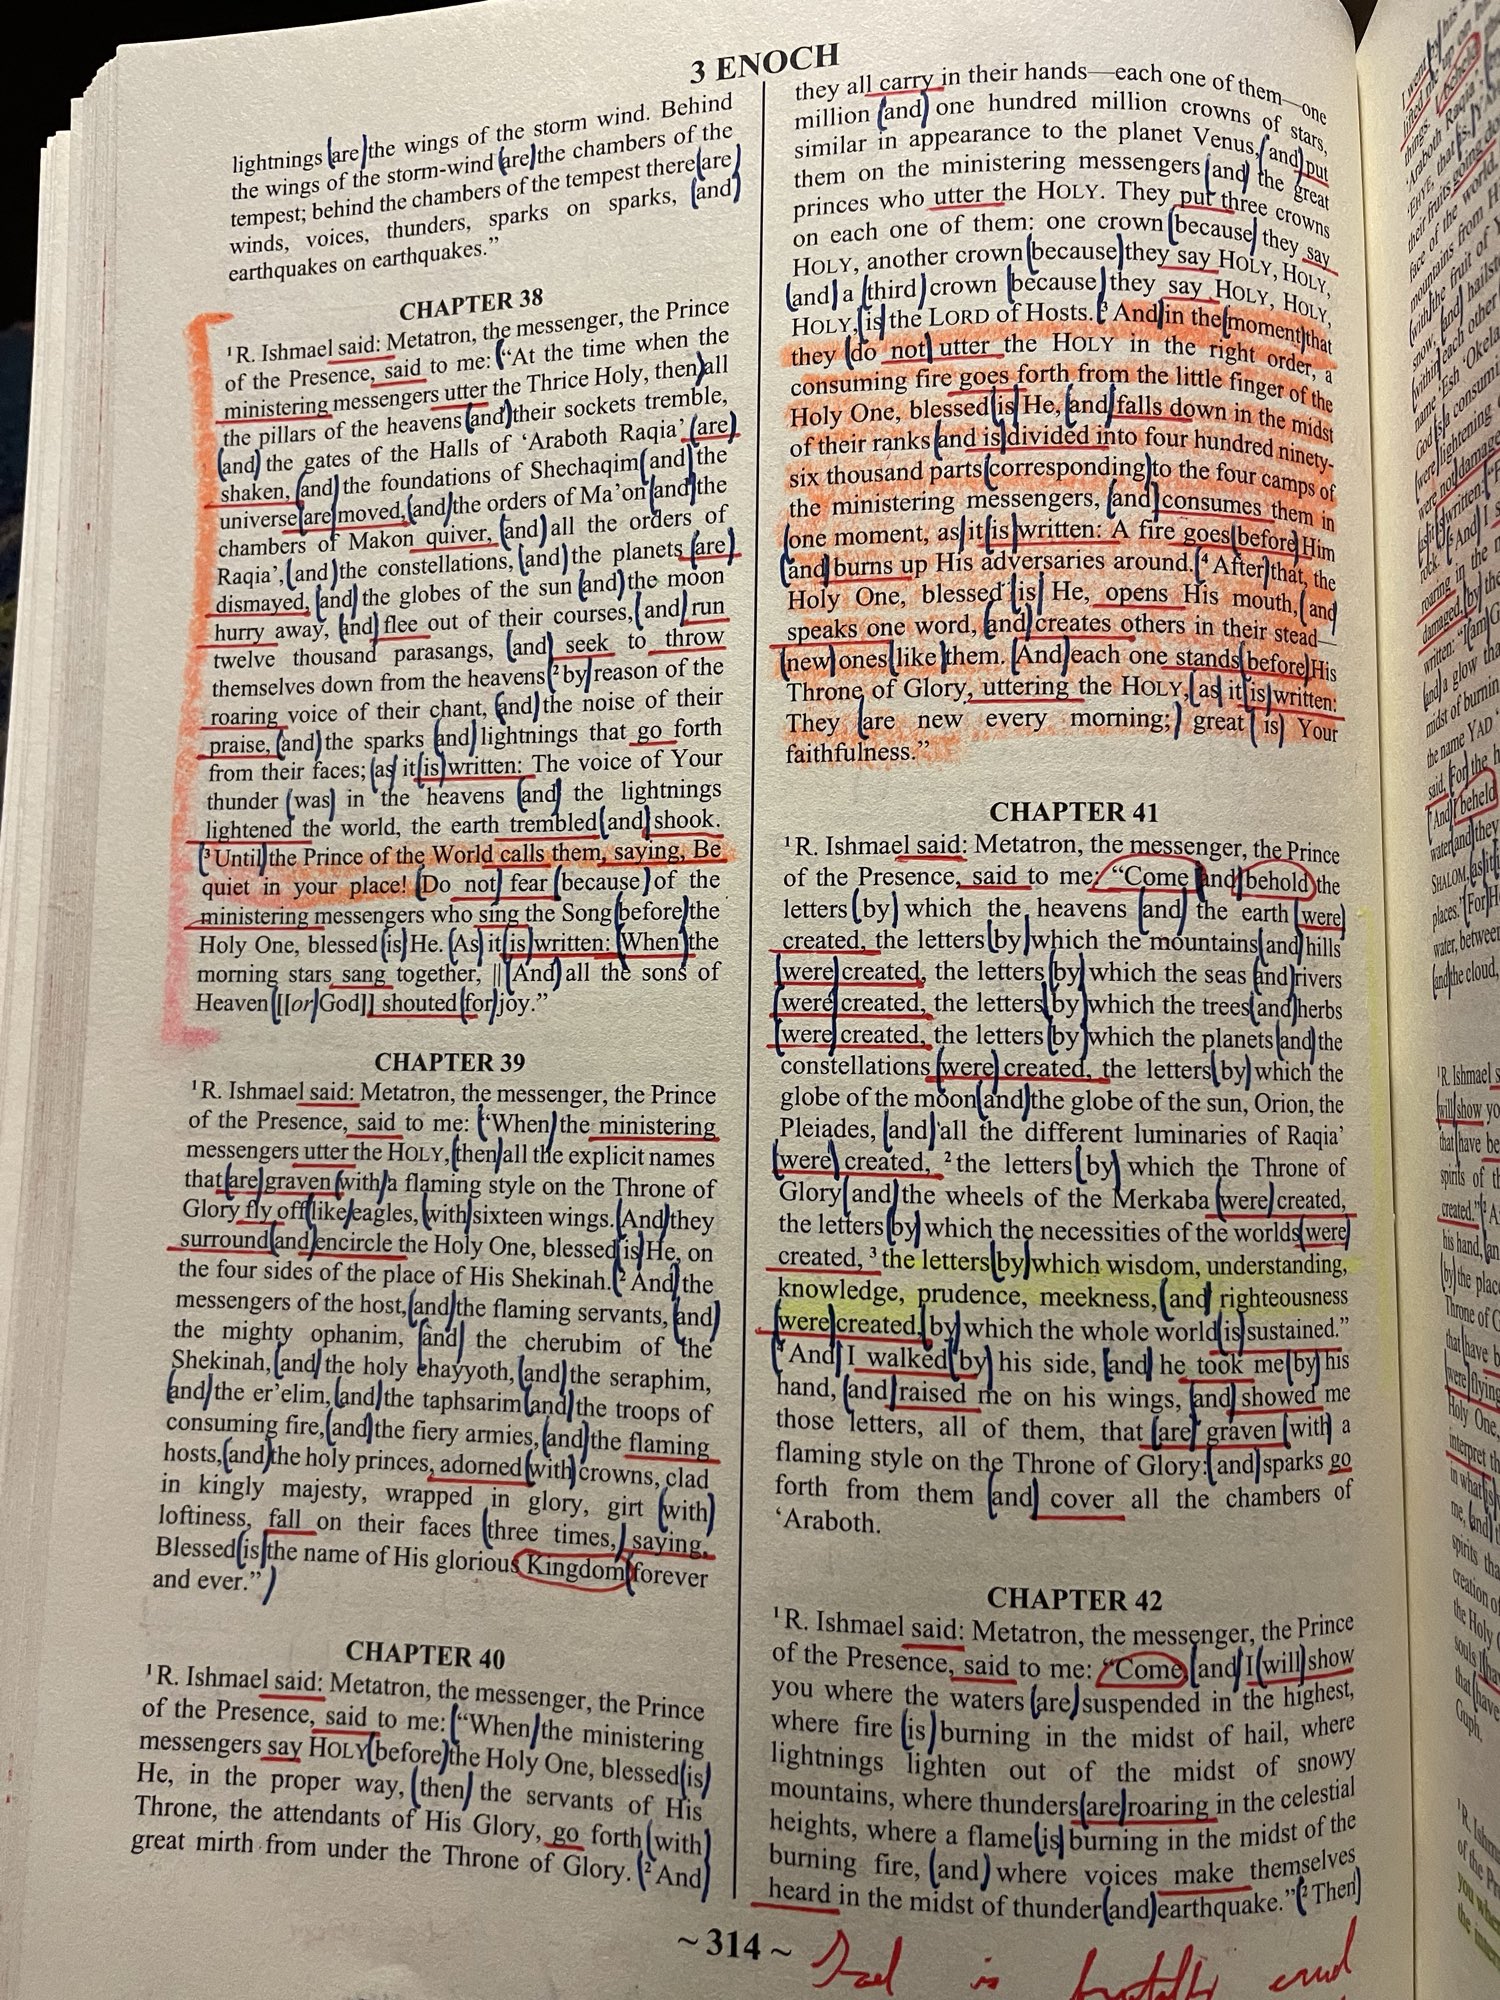 3 ENOCH
lightnings are the wings of the storm wind. Behind
the wings of the storm-wind are the chambers of the
tempest; behind the chambers of the tempest there are
winds, voices, thunders, sparks on sparks, and
earthquakes on earthquakes.”
CHAPTER 38
¹R. Ishmael said: Metatron, the messenger, the Prince
of the Presence, said to me: “At the time when the
ministering messengers utter the Thrice Holy, then all
the pillars of the heavens and their sockets tremble,
and the gates of the Halls of ‘Araboth Raqia’ are
shaken, and the foundations of Shechaqim and the
universe are moved, and the orders of Ma’on and the
chambers of Makon quiver, and all the orders of
Raqia’, and the constellations, and the planets are
dismayed, and the globes of the sun and the moon
hurry away, and flee out of their courses, and run
twelve thousand parasangs, and seek to throw
themselves down from the heavens ² by reason of the
roaring voice of their chant, and the noise of their
praise, and the sparks and lightnings that go forth
from their faces; as it is written: The voice of Your
thunder was in the heavens and the lightnings
lightened the world, the earth trembled and shook.
³Until the Prince of the World calls them, saying, Be
quiet in your place! Do not fear because of the
ministering messengers who sing the Song before the
Holy One, blessed is He. As it is written: When the
morning stars sang together, || And all the sons of
Heaven [[or God]] shouted for joy.”
CHAPTER 39
¹R. Ishmael said: Metatron, the messenger, the Prince
of the Presence, said to me: “When the ministering
messengers utter the HOLY, then all the explicit names
that are graven with a flaming style on the Throne of
Glory fly off like eagles, with sixteen wings. And they
surround and encircle the Holy One, blessed is He, on
the four sides of the place of His Shekinah. ² And the
messengers of the host, and the flaming servants, and
the mighty ophanim, and the cherubim of the
Shekinah, and the holy chayyoth, and the seraphim,
and the er’elim, and the taphsarim and the troops of
consuming fire, and the fiery armies, and the flaming
hosts, and the holy princes, adorned with crowns, clad
in kingly majesty, wrapped in glory, girt with
loftiness, fall on their faces three times, saying,
Blessed is the name of His glorious Kingdom forever
and ever.”
CHAPTER 40
¹R. Ishmael said: Metatron, the messenger, the Prince
of the Presence, said to me: “When the ministering
messengers say HOLY before the Holy One, blessed is
He, in the proper way, then the servants of His
Throne, the attendants of His Glory, go forth with
great mirth from under the Throne of Glory. ² And
they all carry in their hands—each one of them—one
million and one hundred million crowns of stars,
similar in appearance to the planet Venus, and put
them on the ministering messengers and the great
princes who utter the HOLY. They put three crowns
on each one of them: one crown because they say
HOLY, another crown because they say HOLY, HOLY,
and a third crown because they say HOLY, HOLY,
HOLY, is the LORD of Hosts. ³ And in the moment that
they do not utter the HOLY in the right order, a
consuming fire goes forth from the little finger of the
Holy One, blessed is He, and falls down in the midst
of their ranks and is divided into four hundred ninety-
six thousand parts corresponding to the four camps of
the ministering messengers, and consumes them in
one moment, as it is written: A fire goes before Him
and burns up His adversaries around. ⁴ After that, the
Holy One, blessed is He, opens His mouth, and
speaks one word, and creates others in their stead—
new ones like them. And each one stands before His
Throne of Glory, uttering the HOLY, as it is written:
They are new every morning; great is Your
faithfulness.”
CHAPTER 41
¹R. Ishmael said: Metatron, the messenger, the Prince
of the Presence, said to me: “Come and behold the
letters by which the heavens and the earth were
created, the letters by which the mountains and hills
were created, the letters by which the seas and rivers
were created, the letters by which the trees and herbs
were created, the letters by which the planets and the
constellations were created, the letters by which the
globe of the moon and the globe of the sun, Orion, the
Pleiades, and all the different luminaries of Raqia’
were created, ² the letters by which the Throne of
Glory and the wheels of the Merkaba were created,
the letters by which the necessities of the worlds were
created, ³ the letters by which wisdom, understanding,
knowledge, prudence, meekness, and righteousness
were created, by which the whole world is sustained.”
⁴ And I walked by his side, and he took me by his
hand, and raised me on his wings, and showed me
those letters, all of them, that are graven with a
flaming style on the Throne of Glory: and sparks go
forth from them and cover all the chambers of
‘Araboth.
CHAPTER 42
¹R. Ishmael said: Metatron, the messenger, the Prince
of the Presence, said to me: “Come, and I will show
you where the waters are suspended in the highest,
where fire is burning in the midst of hail, where
lightnings lighten out of the midst of snowy
mountains, where thunders are roaring in the celestial
heights, where a flame is burning in the midst of the
burning fire, and where voices make themselves
heard in the midst of thunder and earthquake.” ² Then
~ 314 ~